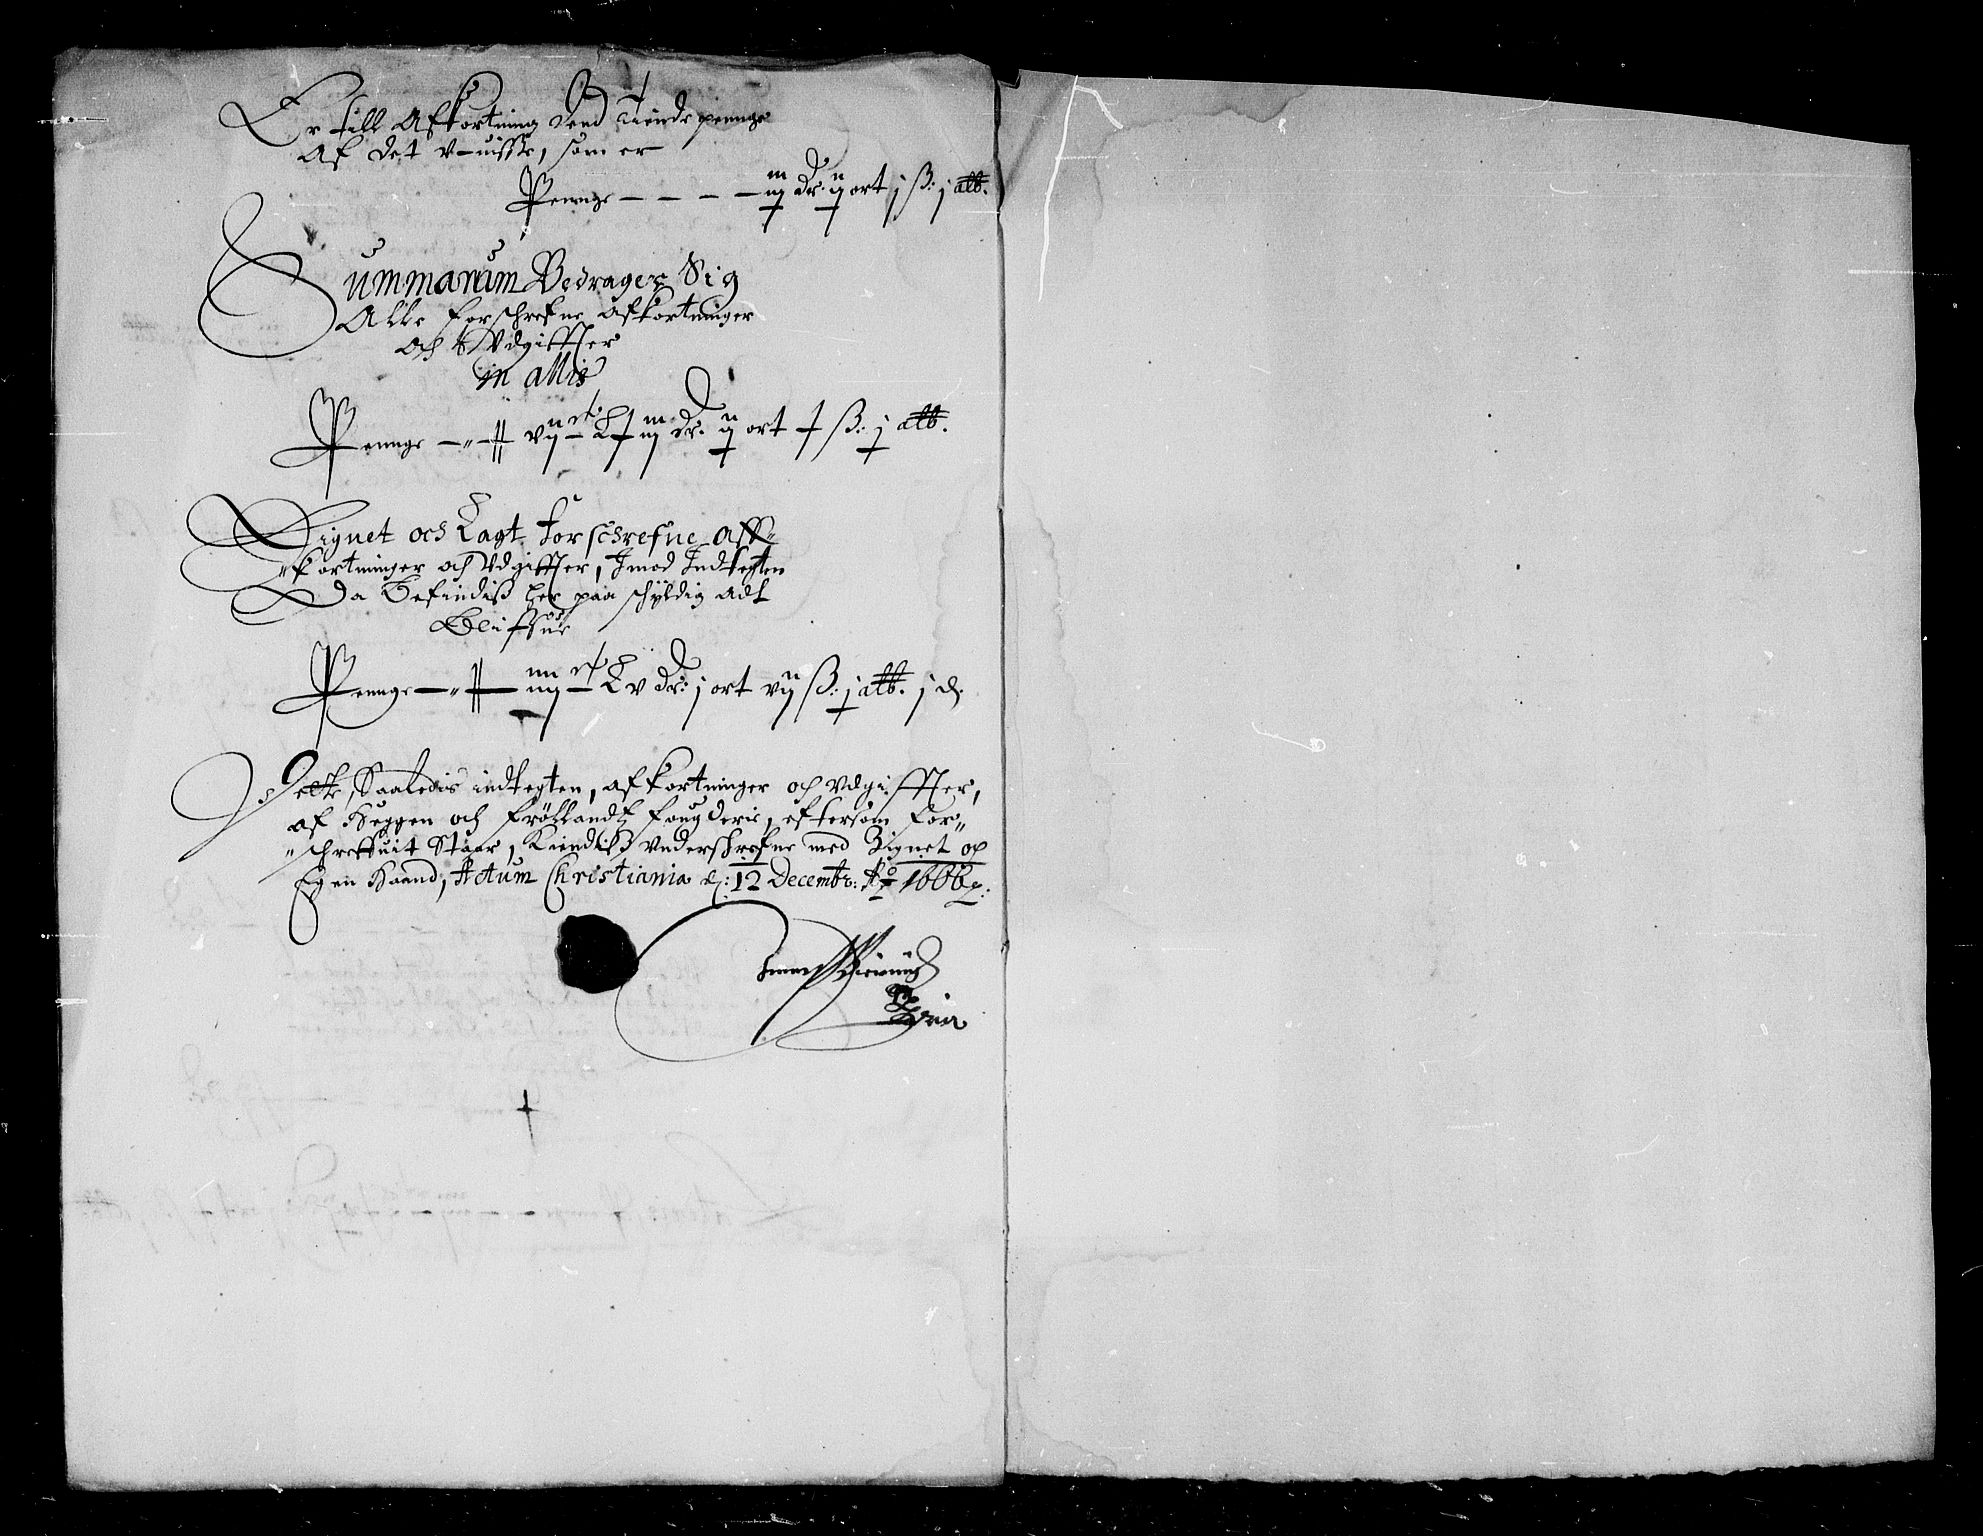 Er till Afkortning dend tiende pennge
Af det v-uisse, som er
Pennge — — — — iij dr: ij ort j ß: j alb.
Summarum Bedrager Sig
Alle forschrefne afkortninger
och Vdgiffter
in allis
Pennge —"— vij dr. ij ort ß: j alb.
Lignet och Lagt forschrefne aff-
"kortninger och Vdgiffter, Imod Indtegten
Da Befindiß her paa schyldig adt
Blifue
Pennge —"— iiij v dr: j ort vij ß: j alb. j d.
Saaledis indtegten, afkortninger och vdgiffter,
af Heggen och Frøllandtz fougderie, eftersom for"
"schrefuit Staar, Kiendiß vnderschrefne med Zignet och
Egen Haand, Actum Christiania d: 12 Decembr: Ao 1666